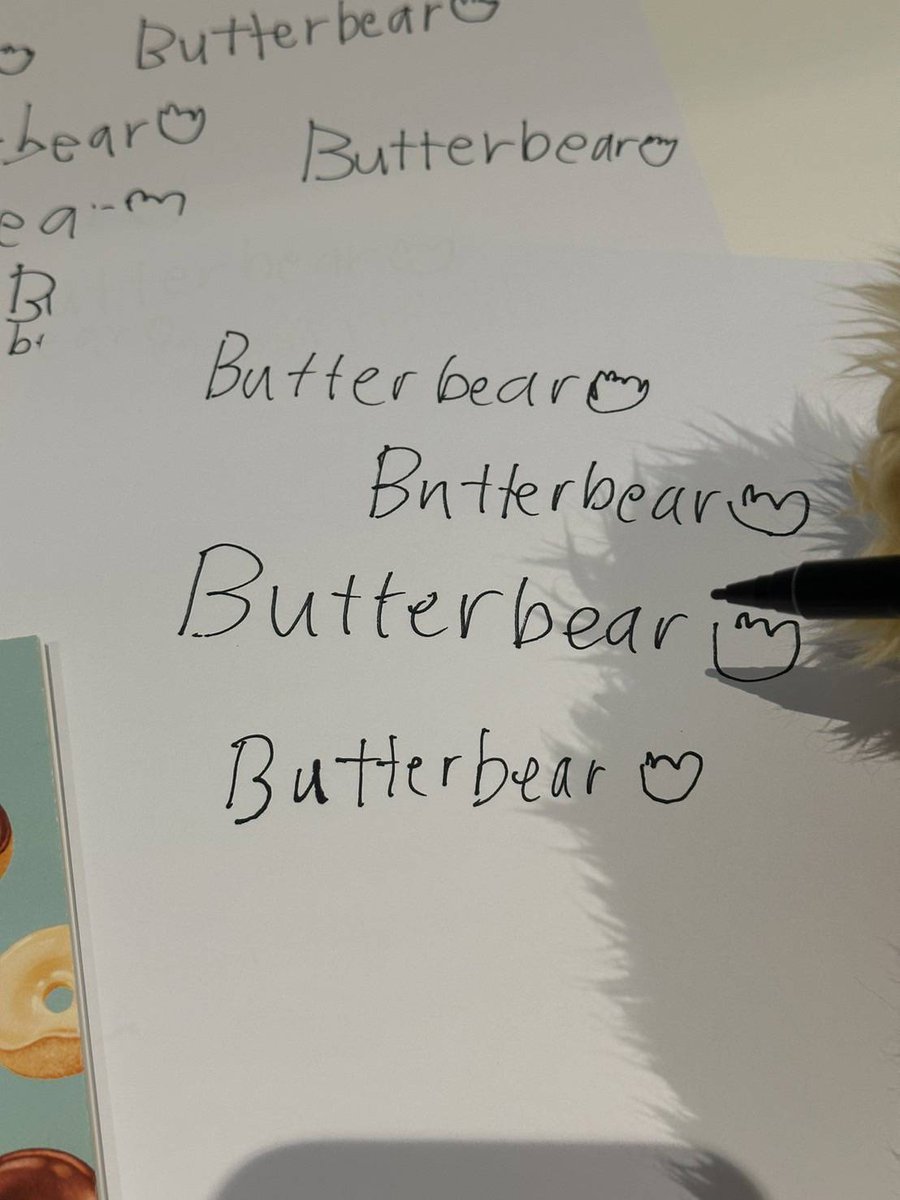 Butterbear
bear
Butterbear
ea
B
b
Butterbear
Butterbear
Butterbear
Butterbear